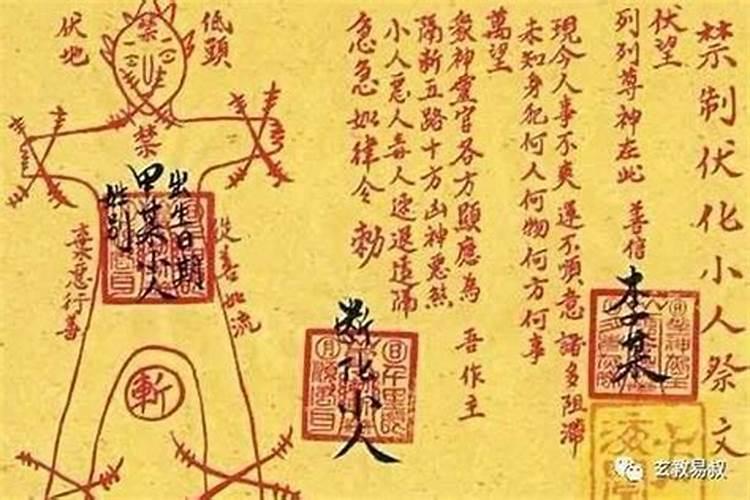 禁制伏化小人祭文
伏望
列列尊神在此 善信
李某
現今人事不爽 運不順意 諸多阻滯
未知身犯何人何物何方何事
萬望
眾神靈官各方顯應為 吾作主
隔斷五路十方凶神惡煞
小人惡人毒人速退遠隔
急急如律令 勅
斷化小人
低頭
禁
伏地
禁
出生日期
甲某小人
姓别
從善如流
棄惡行善
斬
玄教易叔